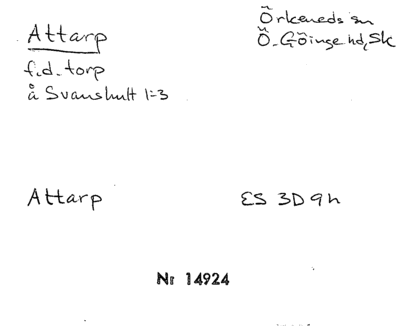 Attarp
f.d. torp
å Svanshult 1:3
Örkeneds sn
Ö. Göinge hd, Sk
Attarp
ES 3D 9h
Nr 14924